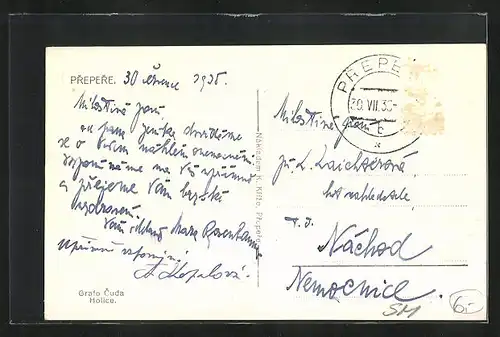 PŘEPEŘE. 30 července 1935.
Milostivá paní,
od pana
se o Vašem náhlém onemocnění.
vzpomínáme na Vás upřímně
a přejeme Vám brzké
uzdravení.
Vám oddaný
upřímně vzpomíná!
A. Kopalová.
Grafo Čuda
Holice.
Nákladem K. Kříže, Přepeře
PŘEPE
30.VII.35-
b
Milostivá paní
L. Laichterová
t. č.
Náchod
Nemocnice.
SM
6.-